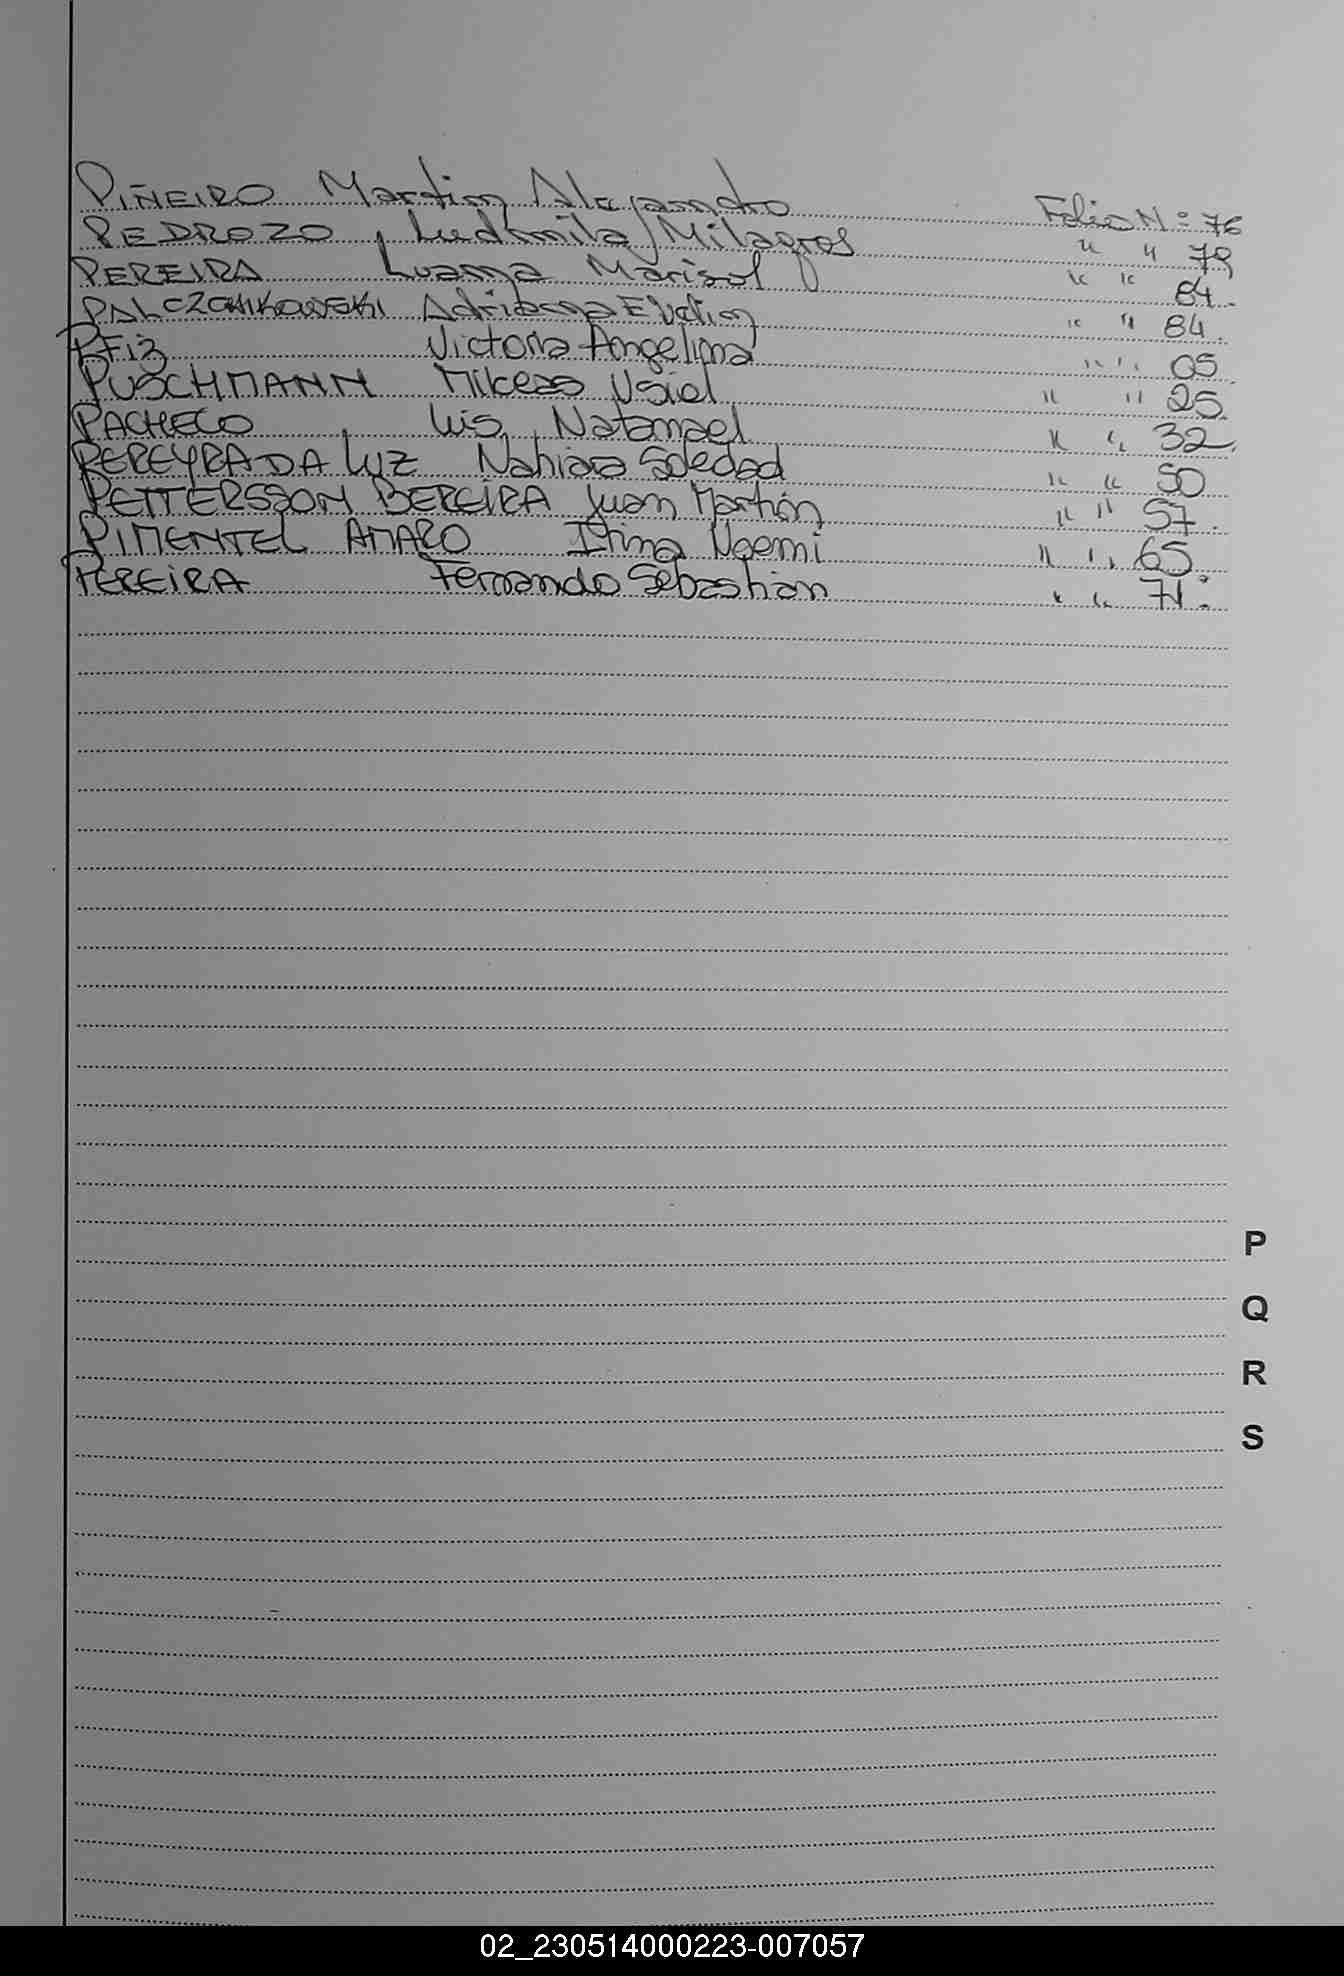 PIÑEIRO Martin Alejandro Folio N: 76
PEDROZO, Ludmila Milagros " " 79
PEREIRA Luana Marisol " " 84.
PALCZCHIKOWSKI Adriana Evelin " " 84.
PFiz Victoria Angelina " " 05.
PUSCHMANN Mikeas Usiel " " 25.
PACHECO, Luis, Natanael " " 32.
PEREYRA DA LUZ Nahiara Soledad " " 50
PETTERSSON BEREIRA Juan Martín " " 57.
PIMENTEL AMARO Irina Noemi " " 65.
PEREIRA Fernando Sebastian " " 71.
P
Q
R
S
02_230514000223-007057